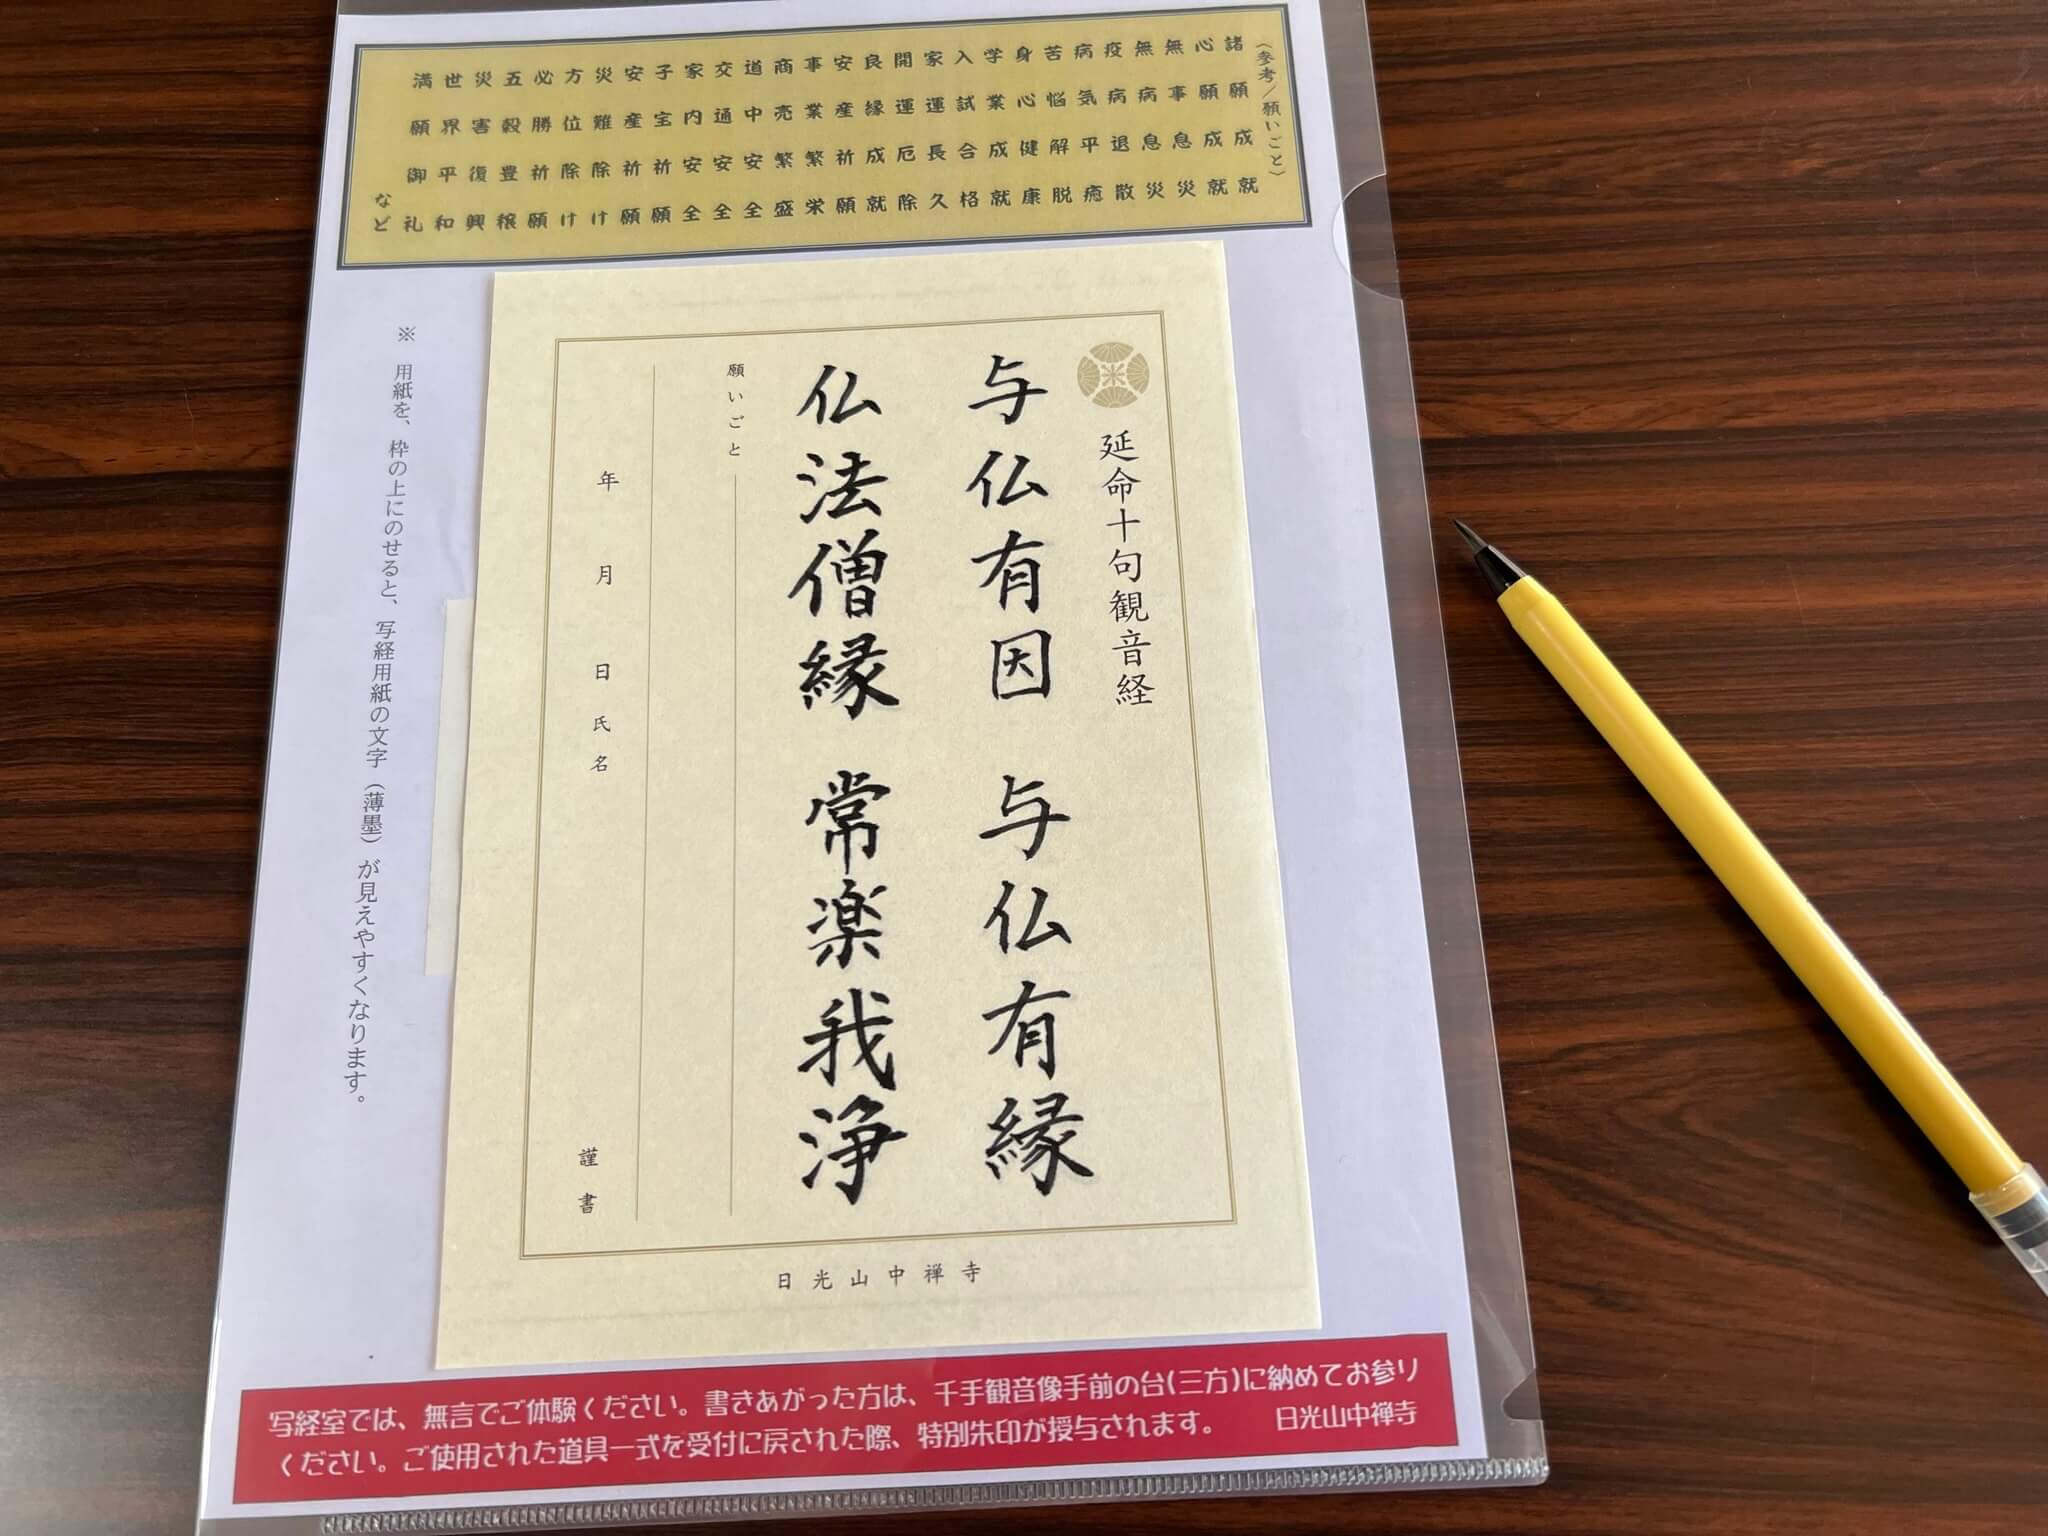 (参考/願いごと)
諸願成就
心願成就
無事息災
無病息災
疫病退散
病気平癒
苦悩解脱
身心健康
学業成就
入試合格
家運長久
開運厄除
良縁成就
安産祈願
事業繁栄
商売繁盛
道中安全
交通安全
家内安全
子宝祈願
安産祈願
災難除け
方位除け
必勝祈願
五穀豊穣
災害復興
世界平和
満願御礼
など
延命十句観音経
与仏有因 与仏有縁
仏法僧縁 常楽我浄
願いごと
年 月 日 氏名 謹書
日光山中禅寺
※ 用紙を、枠の上にのせると、写経用紙の文字(薄墨)が見えやすくなります。
写経室では、無言でご体験ください。書きあがった方は、千手観音像手前の台(三方)に納めてお参り
ください。ご使用された道具一式を受付に戻された際、特別朱印が授与されます。 日光山中禅寺